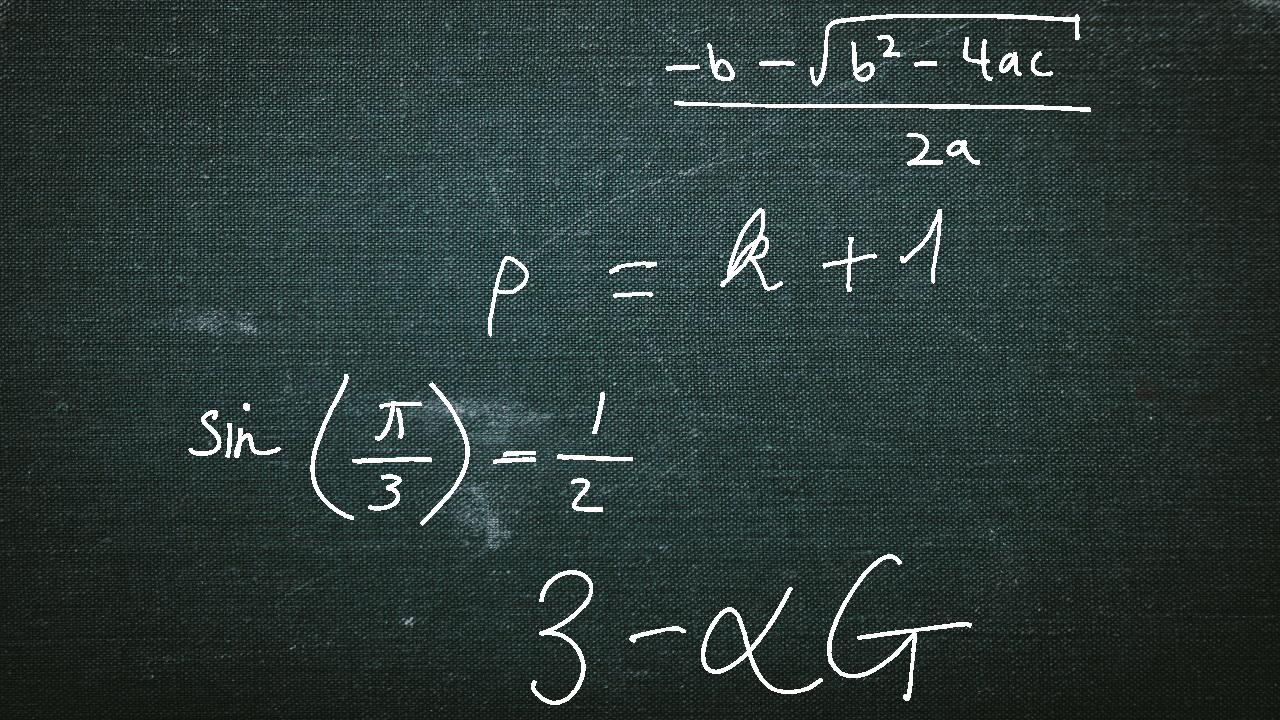 \frac{-b-\sqrt{b^2-4ac}}{2a}
p = k + 1
sin(\frac{π}{3}) = \frac{1}{2}
3 - αG